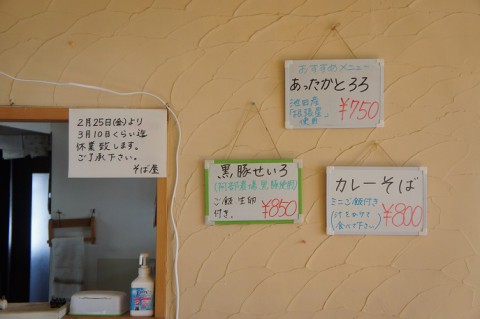 2月25日(金)より
3月10日くらい迄
休業致します。
ご了承下さい。
そば屋
おすすめメニュー
あったかとろろ
池田産
使用
¥750
黒豚せいろ
(阿部農場黒豚使用)
ご飯 生卵
付き。
¥850
カレーそば
ミニご飯付き
(汁をかけて
食べて下さい)
¥800